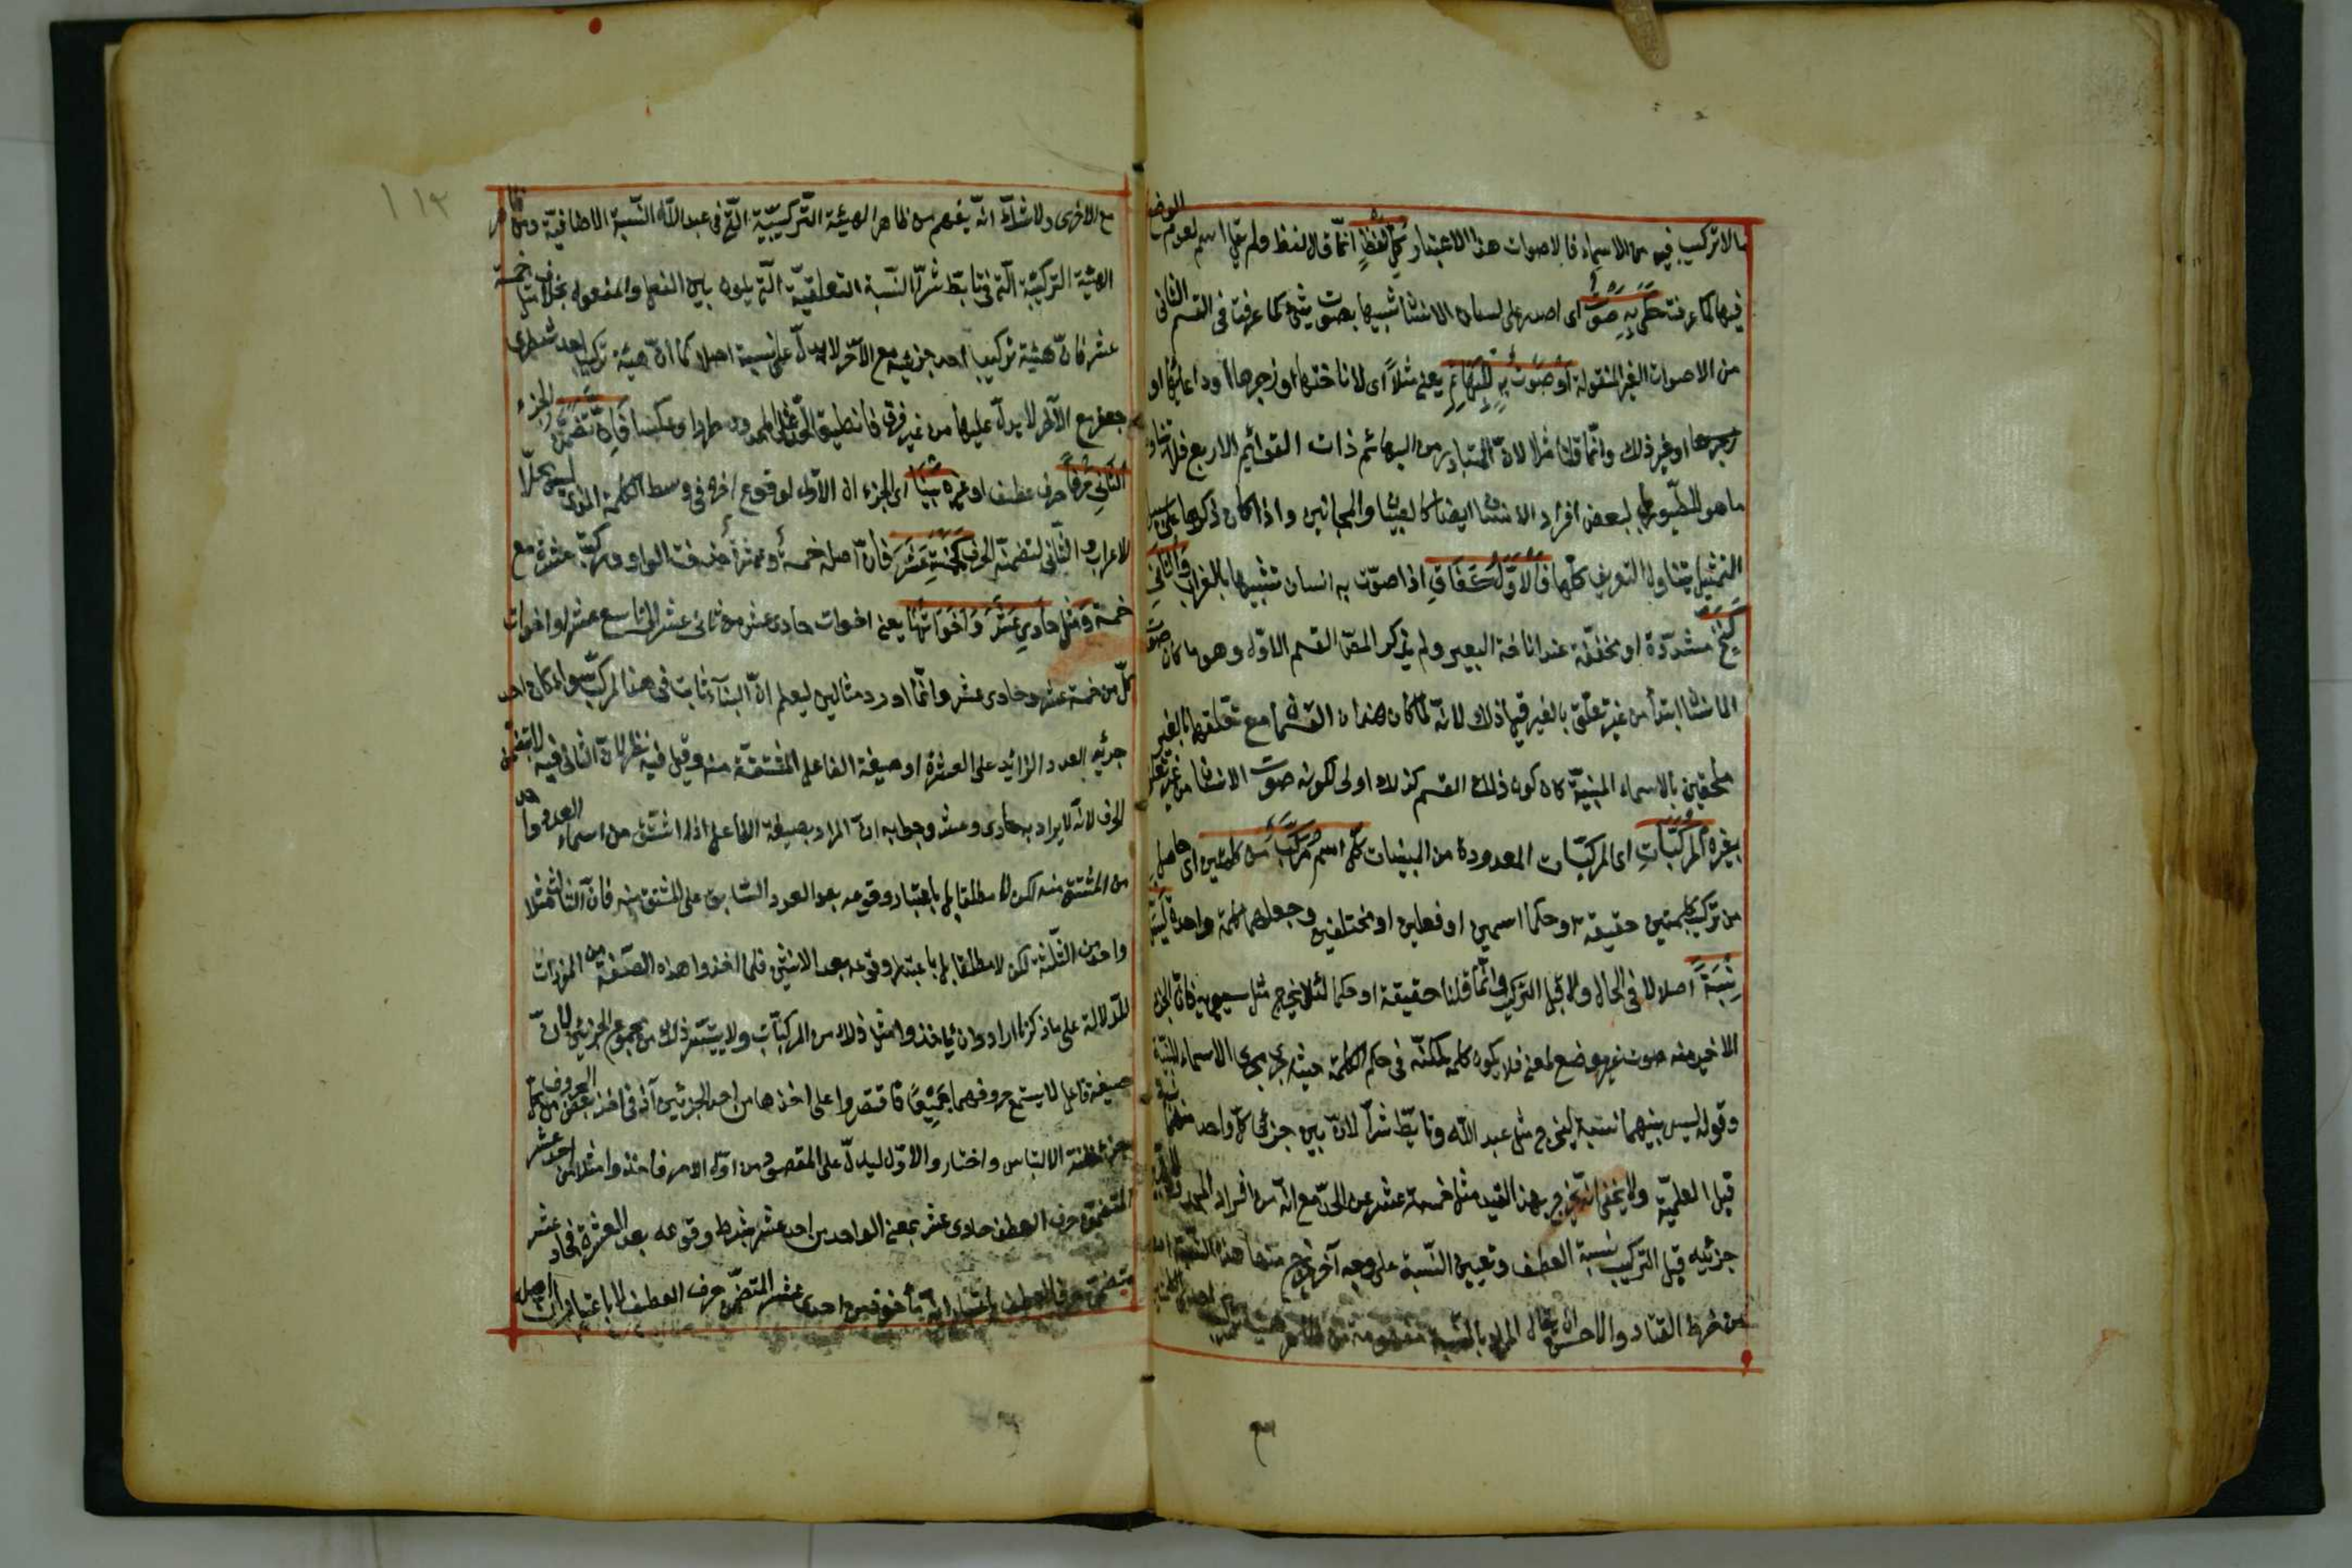 ما لا تركيب فيه من الاسماء فالاصوات هذا الاعتبار كل لفظ انما قال لفظ ولم يقل اسم لعدم الوضع
فيها كما عرفت حكى به صوت اى اصدر على لسان الانسان تشبيها بصوت شئ كما عرفت فى القسم الثانى
من الاصوات الغير المنقولة او صوت به للبهائم يعنى مثلا اى لاناختها او زجرها او دعائها او
او غير ذلك وانما قلنا مثلا لان المتبادر من البهائم ذات القوائم الاربع فلا يتناول
ما هو للطيور لبعض افراد الانسان ايضا كالصبيان والمجانين واذا كان ذكرها على سبيل
التمثيل يتناول التعريف كلها فالاول كغاق اذا صوت به انسان تشبيها بالغراب والثانى
كنخ مشددة او مخففة عند اناخة البعير ولم يذكر المص القسم الاول وهو ما كان صوت
الانسان ابتدأ من غير تعلق بالغير قيل ذلك لانه لما كان هذان القسمان مع تعلقهما بالغير
ملحقين بالاسماء المبنية كان كون ذلك القسم كذلك اولى لكونه صوت الانسان من غير تعلق
بغيره المركبات اى المركبات المعدودة من المبنيات كل اسم مركب من كلمتين اى حاصل
من تركيب كلمتين حقيقة او حكما اسمين او فعلين او مختلفين وجعلهما كلمة واحدة ليس
نسبة اصلا لا فى الحال ولا قبل التركيب وانما قلنا حقيقة او حكما لئلا يخرج مثل سيبويه فان الجزء
الاخير منه صوت غير موضوع لمعنى فلا يكون كلمة لكنه فى حكم الكلمة حيث جرى مجرى الاسماء المبنية
وقوله ليس بينهما نسبة ليخرج مثل عبد الله وتأبط شرا لان بين جزئى كل واحد منهما نسبة
قبل العلمية ولا يخفى انه يخرج بهذا القيد مثل خمسة عشر عن الحد مع انه من افراد المحدود
جزئيه قبل التركيب نسبة العطف وتعيين النسبة على وجه آخر يخرج منها هذه النسبة
من خرط القتاد والاحسن ان يقال المراد بالنسبة مفهومة من ظاهر
١١٣
مع الاخرى ولا شك انه يفهم من ظاهر الهيئة التركيبية التى فى عبد الله النسبة الاضافية ومن ظاهر
الهيئة التركيبية التى فى تأبط شرا النسبة التعلقية التى يكون بين الفعل والمفعول بخلاف مثل خمسة
عشر فان هيئة تركيب احد جزئيه مع الآخر لا يدل على نسبة اصلا كما ان هيئة تركيب احد شطرى
جعفر مع الآخر لا يدل عليها من غير فرق فانطبق الحد على المحدود طردا وعكسا فان تضمن الجزء
الثانى حرفا حرف عطف او غيره بنيا اى الجزء ان الاول لوقوع اخره فى وسط الكلمة الذى ليس محلا
للاعراب والثانى لتضمنه الحرف كخمسة عشر فان اصله خمسة وعشرة حذفت الواو وركبت عشرة مع
خمسة ومثل حادى عشر واخواتها يعنى اخوات حادى عشر من ثانى عشر الى تاسع عشر او اخوات
كل من خمسة عشر وحادى عشر وانما اورد مثالين ليعلم ان البناء ثابت فى هذا المركب سواء كان احد
جزئيه العدد الزائد على العشرة او صيغة الفاعل المشتقة منه وقيل فيه نظر لان الثانى فيه لا يتضمن
الحرف لانه لا يراد به حادى وعشر وجوابه ان المراد بصيغة الفاعل اذا اشتق من اسماء العدد واحد
من المشتق منه لكن لا مطلقا بل باعتبار وقوعه بعد العدد السابق على المشتق منه فان الثالث مثلا
واحد من الثلثة لكن لا مطلقا بل باعتبار وقوعه بعد الاثنين فلما اخذوا هذه الصيغة من المفردات
للدلالة على ما ذكرنا ارادوا ان يأخذوا مثل ذلك من المركبات ولا يتيسر ذلك من مجموع الجزئين لان
صيغة فاعل لا يسع حروفهما جميعا فاقتصروا على اخذها من احد الجزئين اذ فى اخذ بعض الحروف من كل
جزء مظنة الالتباس واختاروا الاول ليدل على المقصود من اول الامر فاخذوا مثلا من احد عشر
المتضمن حرف العطف حادى عشر بمعنى الواحد من احد عشر بشرط وقوعه بعد العشرة فحادى عشر
متضمن حرف العطف باعتبار انه مأخوذ من احد عشر المتضمن حرف العطف لا باعتبار ان اصله